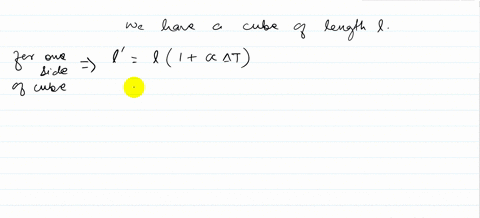 We have a cube of length l.
for one side of cube => l' = l (1 + α ΔT)